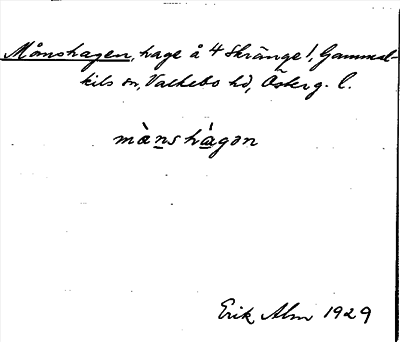 Månshagen, hage å 4 Skränge!, Gammal-
kils sn, Valkebo hd, Österg. l.
mànshàgən
Erik Alm 1929